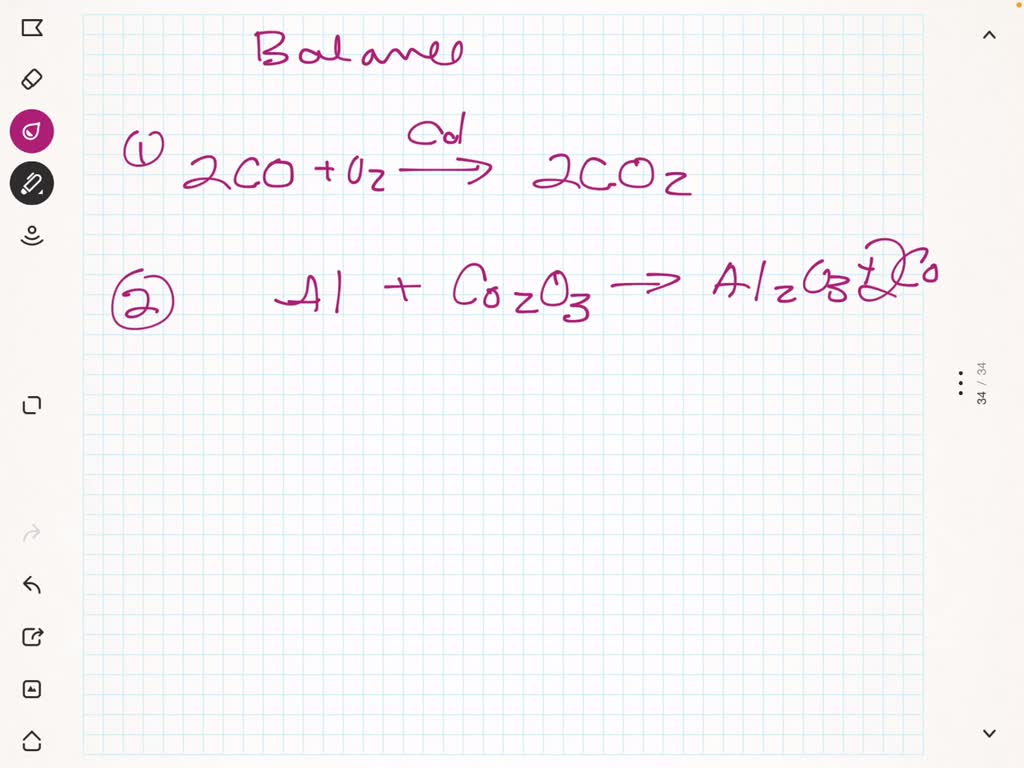 Balance
① 2CO + O₂ → 2CO₂
② Al + Co₂O₃ → Al₂O₃ + 2Co
34 / 34